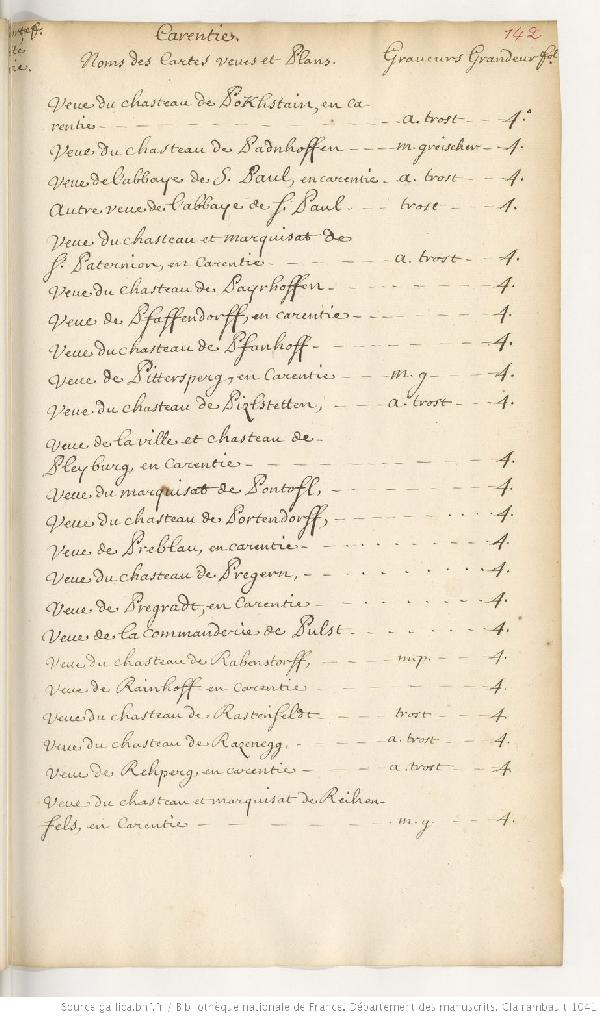 Carentie. 142
Noms des Cartes veues et Plans. Graveurs Grandeur
Veue du chasteau de Pokhstain, en ca-
rentie - a. trost - 4.°
Veue du chasteau de Padnhoffen - m. greischer - 4.
Veue de l'abbaye de S. Paul, en carentie - a. trost - 4.
Autre veue de l'abbaye de S. Paul - trost - 4.
Veue du chasteau et marquisat de
S. Paternion, en Carentie - a. trost - 4.
Veue du chasteau de Payrhoffen - 4.
Veue de Pfaffendorff, en carentie - 4.
Veue du chasteau de Pfanhoff - 4.
Veue de Pittersperg, en Carentie - m. g - 4.
Veue du chasteau de Pizlstetten, - a. trost - 4.
Veue de la ville et chasteau de
Pleyburg, en Carentie - 4.
Veue du marquisat de Pontafl, - 4.
Veue du chasteau de Portendorff, - 4.
Veue de Preblau, en carentie - 4.
Veue du chasteau de Pregern, - 4.
Veue de Pregradt, en Carentie - 4.
Veue de la commanderie de Pulst - 4.
Veue du chasteau de Rabenstorff, - m.p. - 4.
Veue de Rainhoff en carentie - 4.
Veue du chasteau de Rastenfeldt - trost - 4
Veue du chasteau de Razenegg, - a. trost - 4.
Veue de Rehperg, en carentie - a. trost - 4
Veue du chasteau et marquisat de Reihen-
fels, en Carentie - m. g. - 4.
Source gallica.bnf.fr / Bibliothèque nationale de France. Département des manuscrits. Clairambault 1041